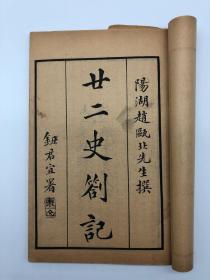 陽湖趙甌北先生撰
廿二史劄記
鉏君宜署